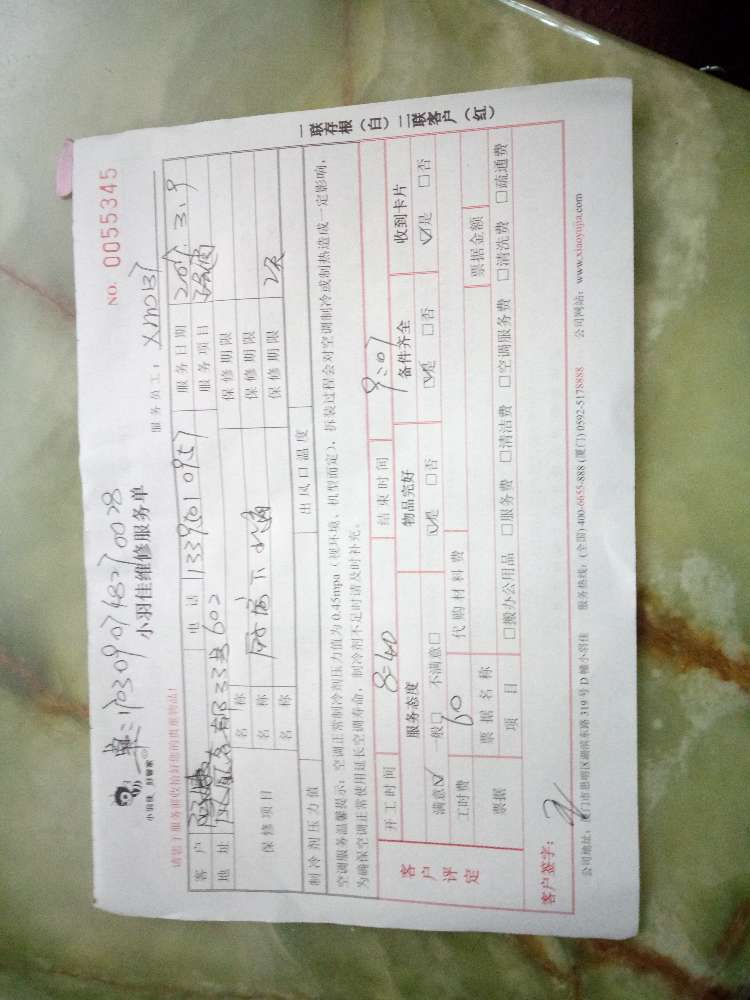 NO. 0055345
单:1703090748270028
小羽佳 好管家
小羽佳维修服务单
服务员工: XM0137
请您于服务前收拾好您的贵重物品!
客户 电话 13395010957 服务日期 2017.3.9
地址 602 服务项目
保修项目 名称 保修期限
名称 厨房下水道 保修期限
名称 保修期限 2天
制冷剂压力值 出风口温度
空调服务温馨提示:空调正常制冷剂压力值为0.45mpa(视环境、机型而定),拆装过程会对空调制冷或制热造成一定影响,
为确保空调正常使用延长空调寿命,制冷剂不足时请及时补充。
客户评定
开工时间 8:40 结束时间 9:07
服务态度 物品完好 备件齐全 收到卡片
满意☑ 一般□ 不满意□ ☑是 □否 ☑是 □否 ☑是 □否
工时费 60 代购材料费
票据 票据名称 票据金额
项目 □搬办公用品 □服务费 □清洁费 □空调服务费 □清洗费 □疏通费
客户签字:
公司地址:厦门市思明区湖滨东路319号D幢小羽佳 服务热线:(全国)400-6655-888 (厦门)0592-5178888 公司网站:www.xiaoyujia.com
一联存根(白)二联客户(红)